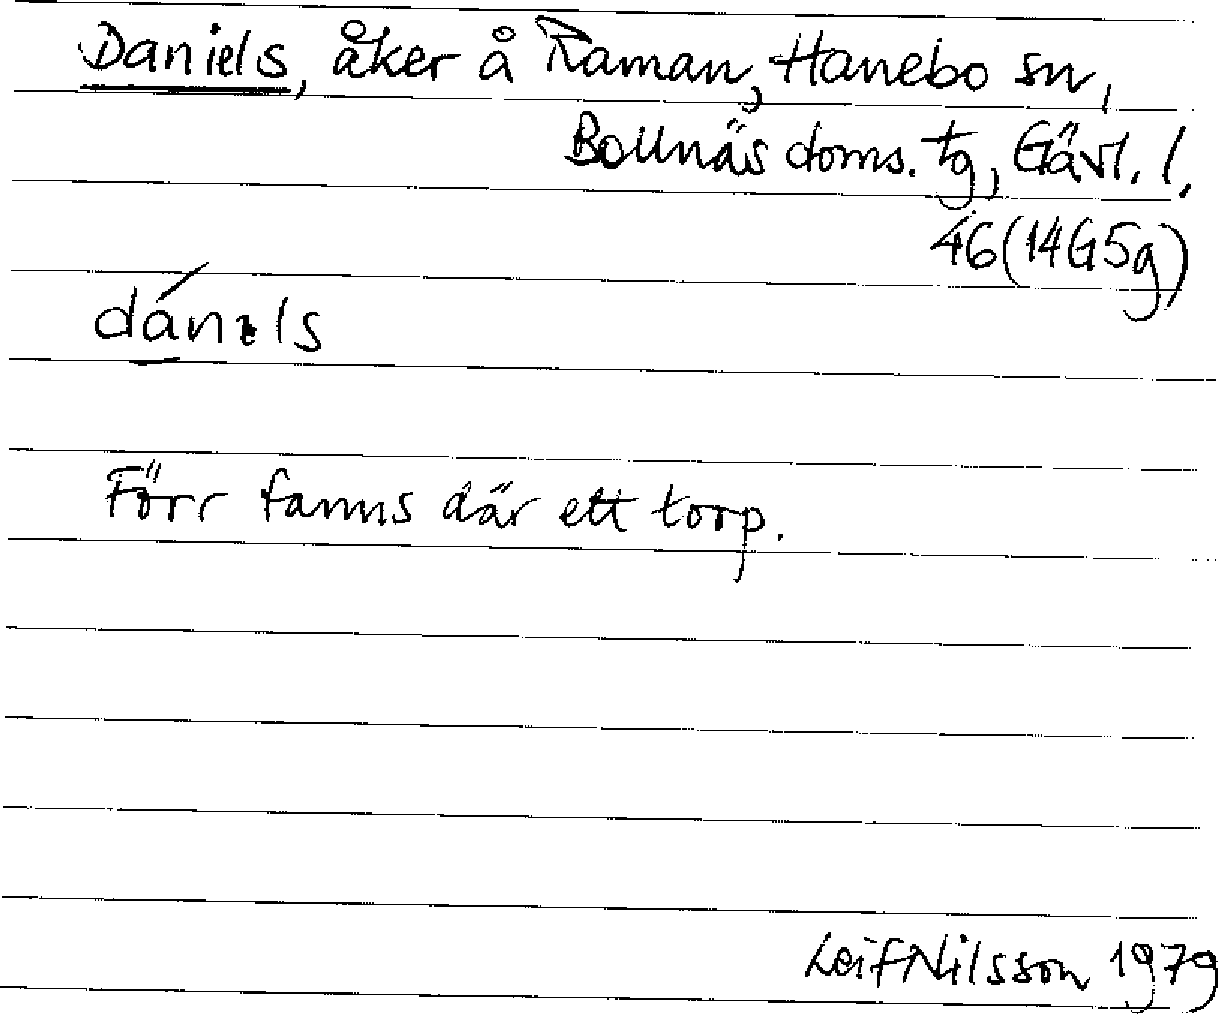 Daniels, åker å Raman, Hanebo sn,
Bollnäs doms. tg, Gävl. l.
46 (14G5g)
dánɩls
Förr fanns där ett torp.
Leif Nilsson 1979